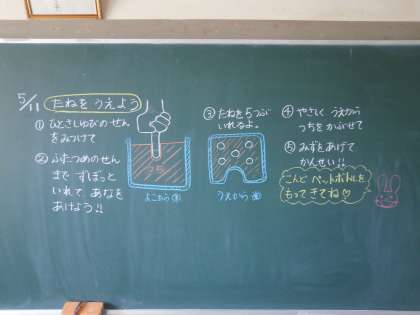 5/11 たねを うえよう
① ひとさしゆびの せん
をみつけて
② ふたつめのせん
まで ずぼっと
いれて あなを
あけよう!!
よこから
③ たねを 5つぶ
いれるよ。
うえから
④ やさしく うえから
つちを かぶせて
⑤ みずをあげて
かんせい!!
こんど ペットボトルを
もってきてね♡